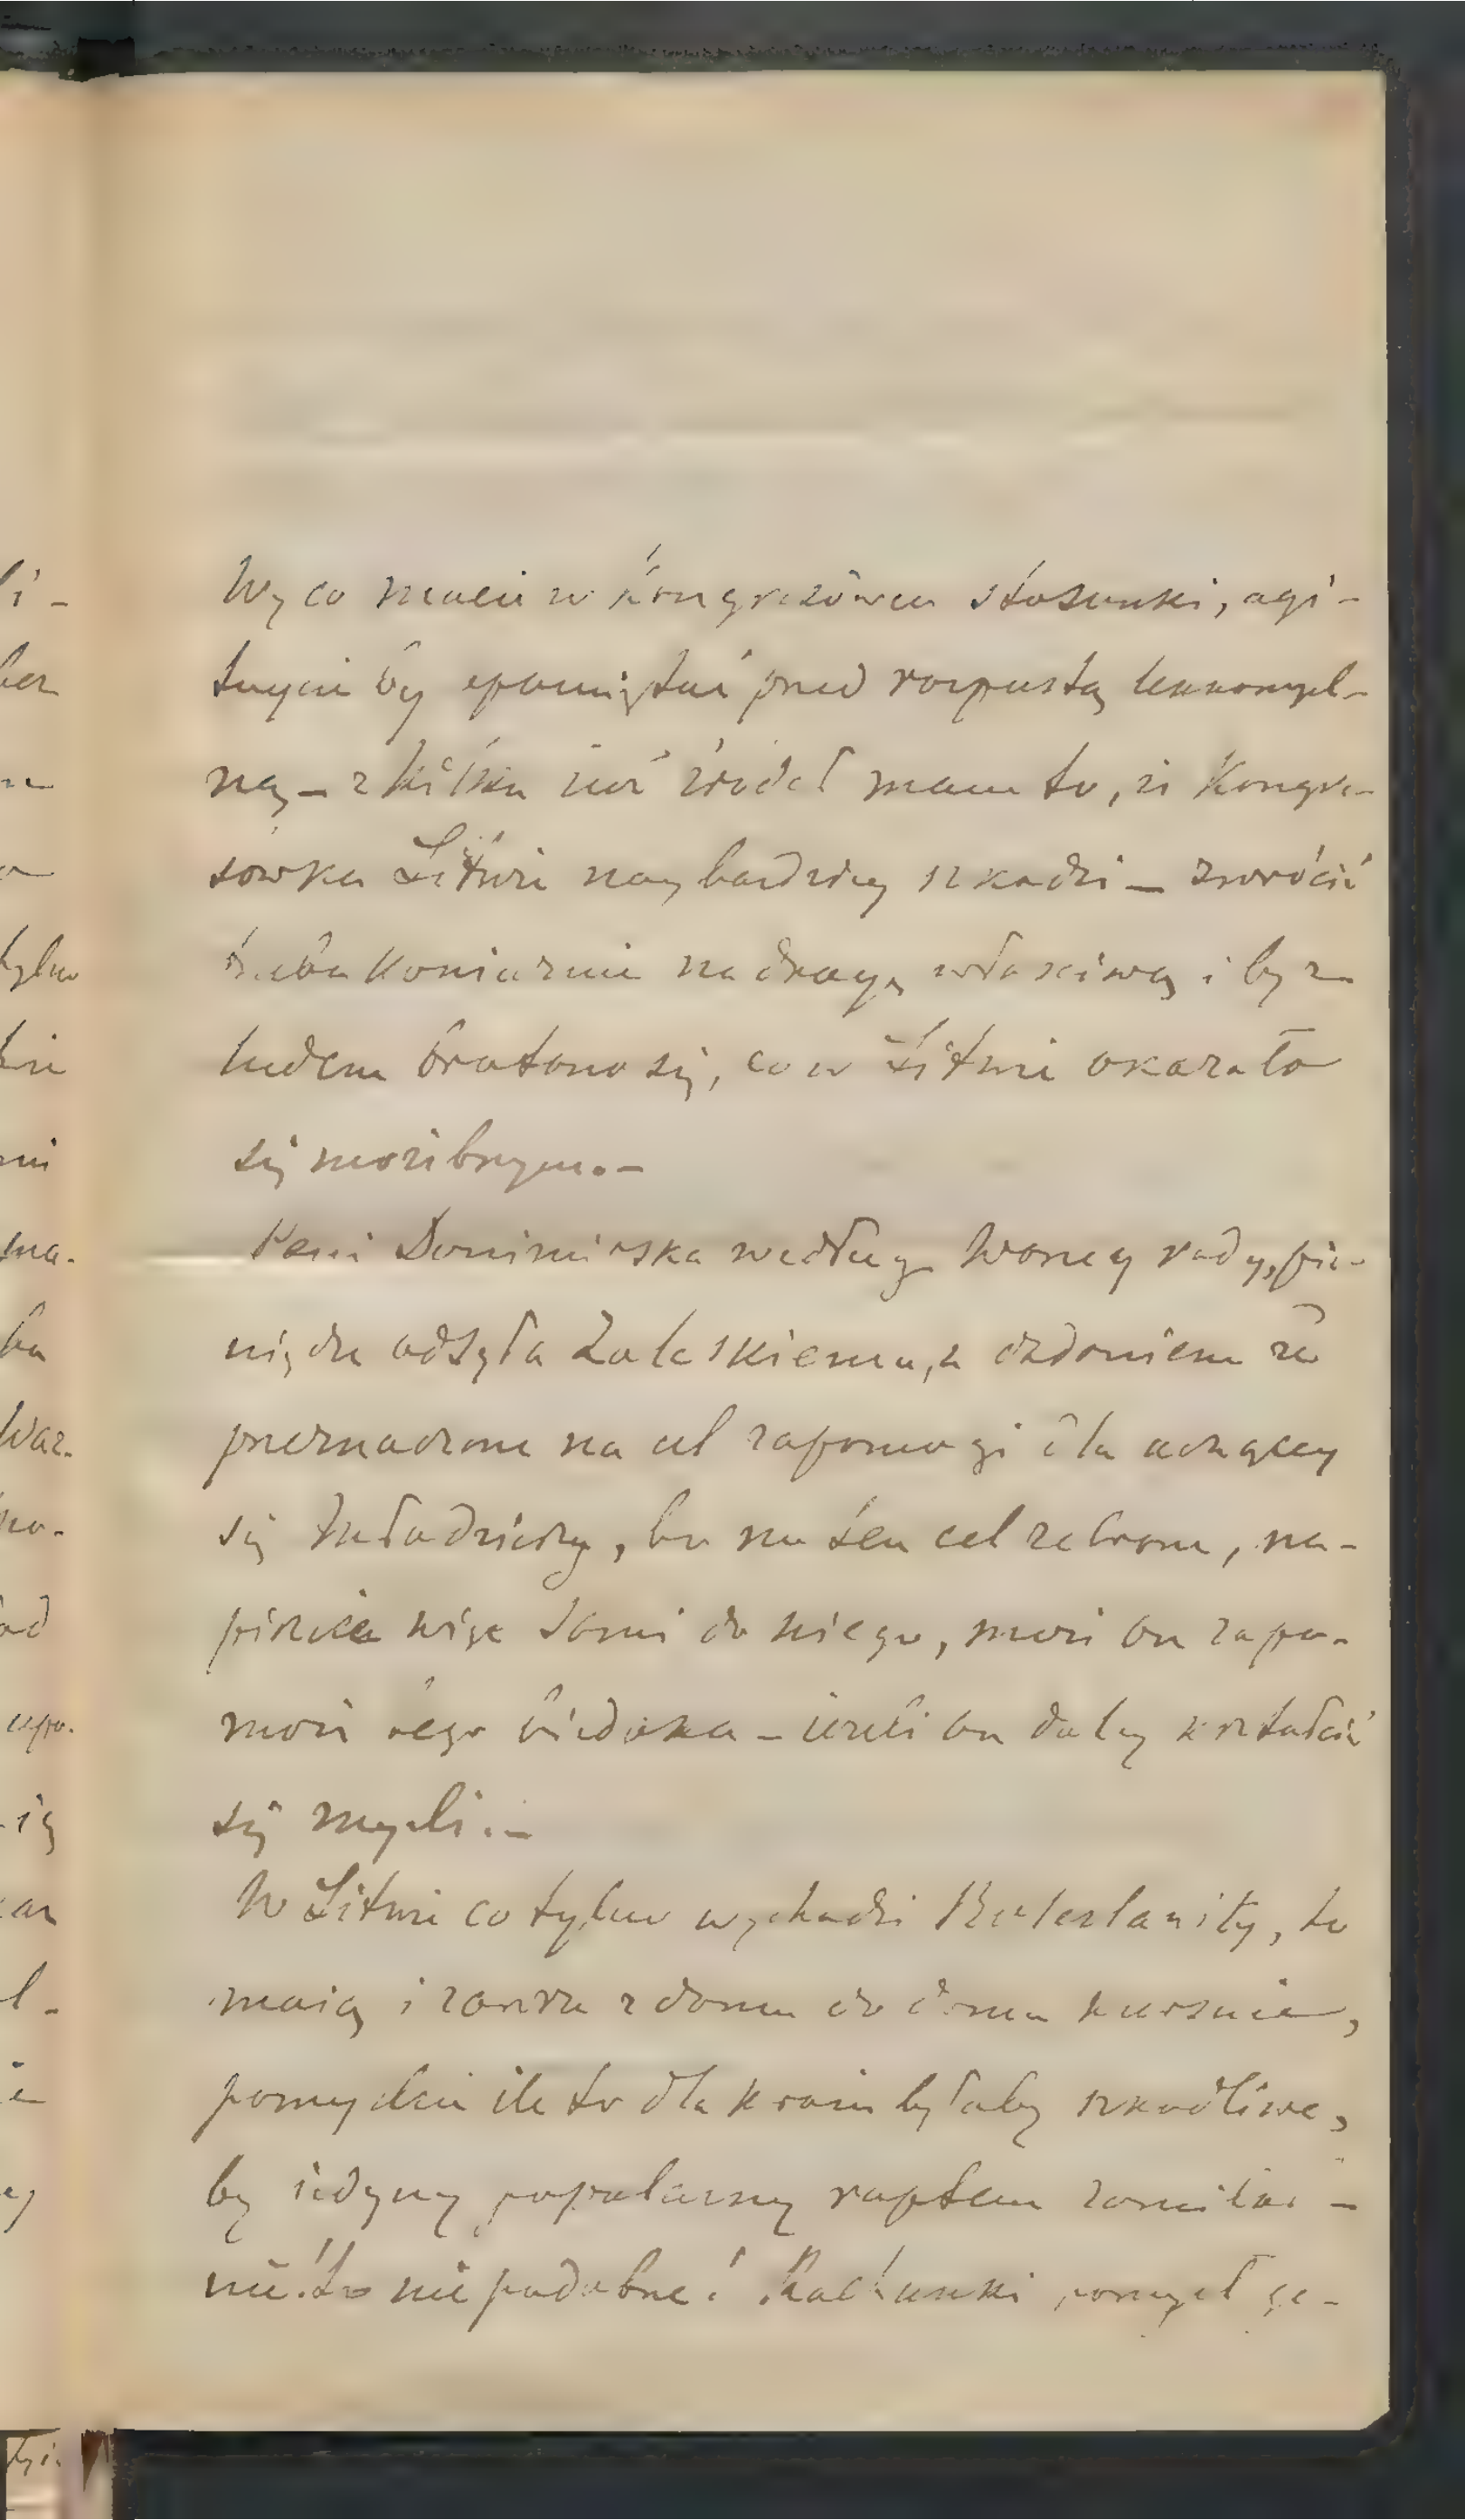 Wy co macie w Kongresówce stosunki, agi-
tujcie by opamiętać przed rozpustą lekkomyśl-
ną – z kilku już źródeł mam to, że Kongre-
sówka Litwie naybardziey szkodzi – zwrócić
trzeba koniecznie na drogę właściwą i by z
ludem bratano się, co w Litwie okazało
się możebnym. –
Pani Donimirska według Twoiey rady, pie-
niądze odsyła Zaleskiemu, z dodaniem że
przeznaczone na cel zapomogi dla uczącey
się młodzieży, bo na ten cel zebrane, na-
piszcie więc sami do niego, może on zapo-
może tego biedaka – ieżeli on daley kształcić
się myśli. –
W Litwie co tylko wychodzi
maią i zawsze z domu do domu kursuie,
pomyślcie ile to dla kraiu byłaby szkodliwe,
by iedyny popularny raptem zamilkł –
nie! to nie podobne! Rachunki pomysł